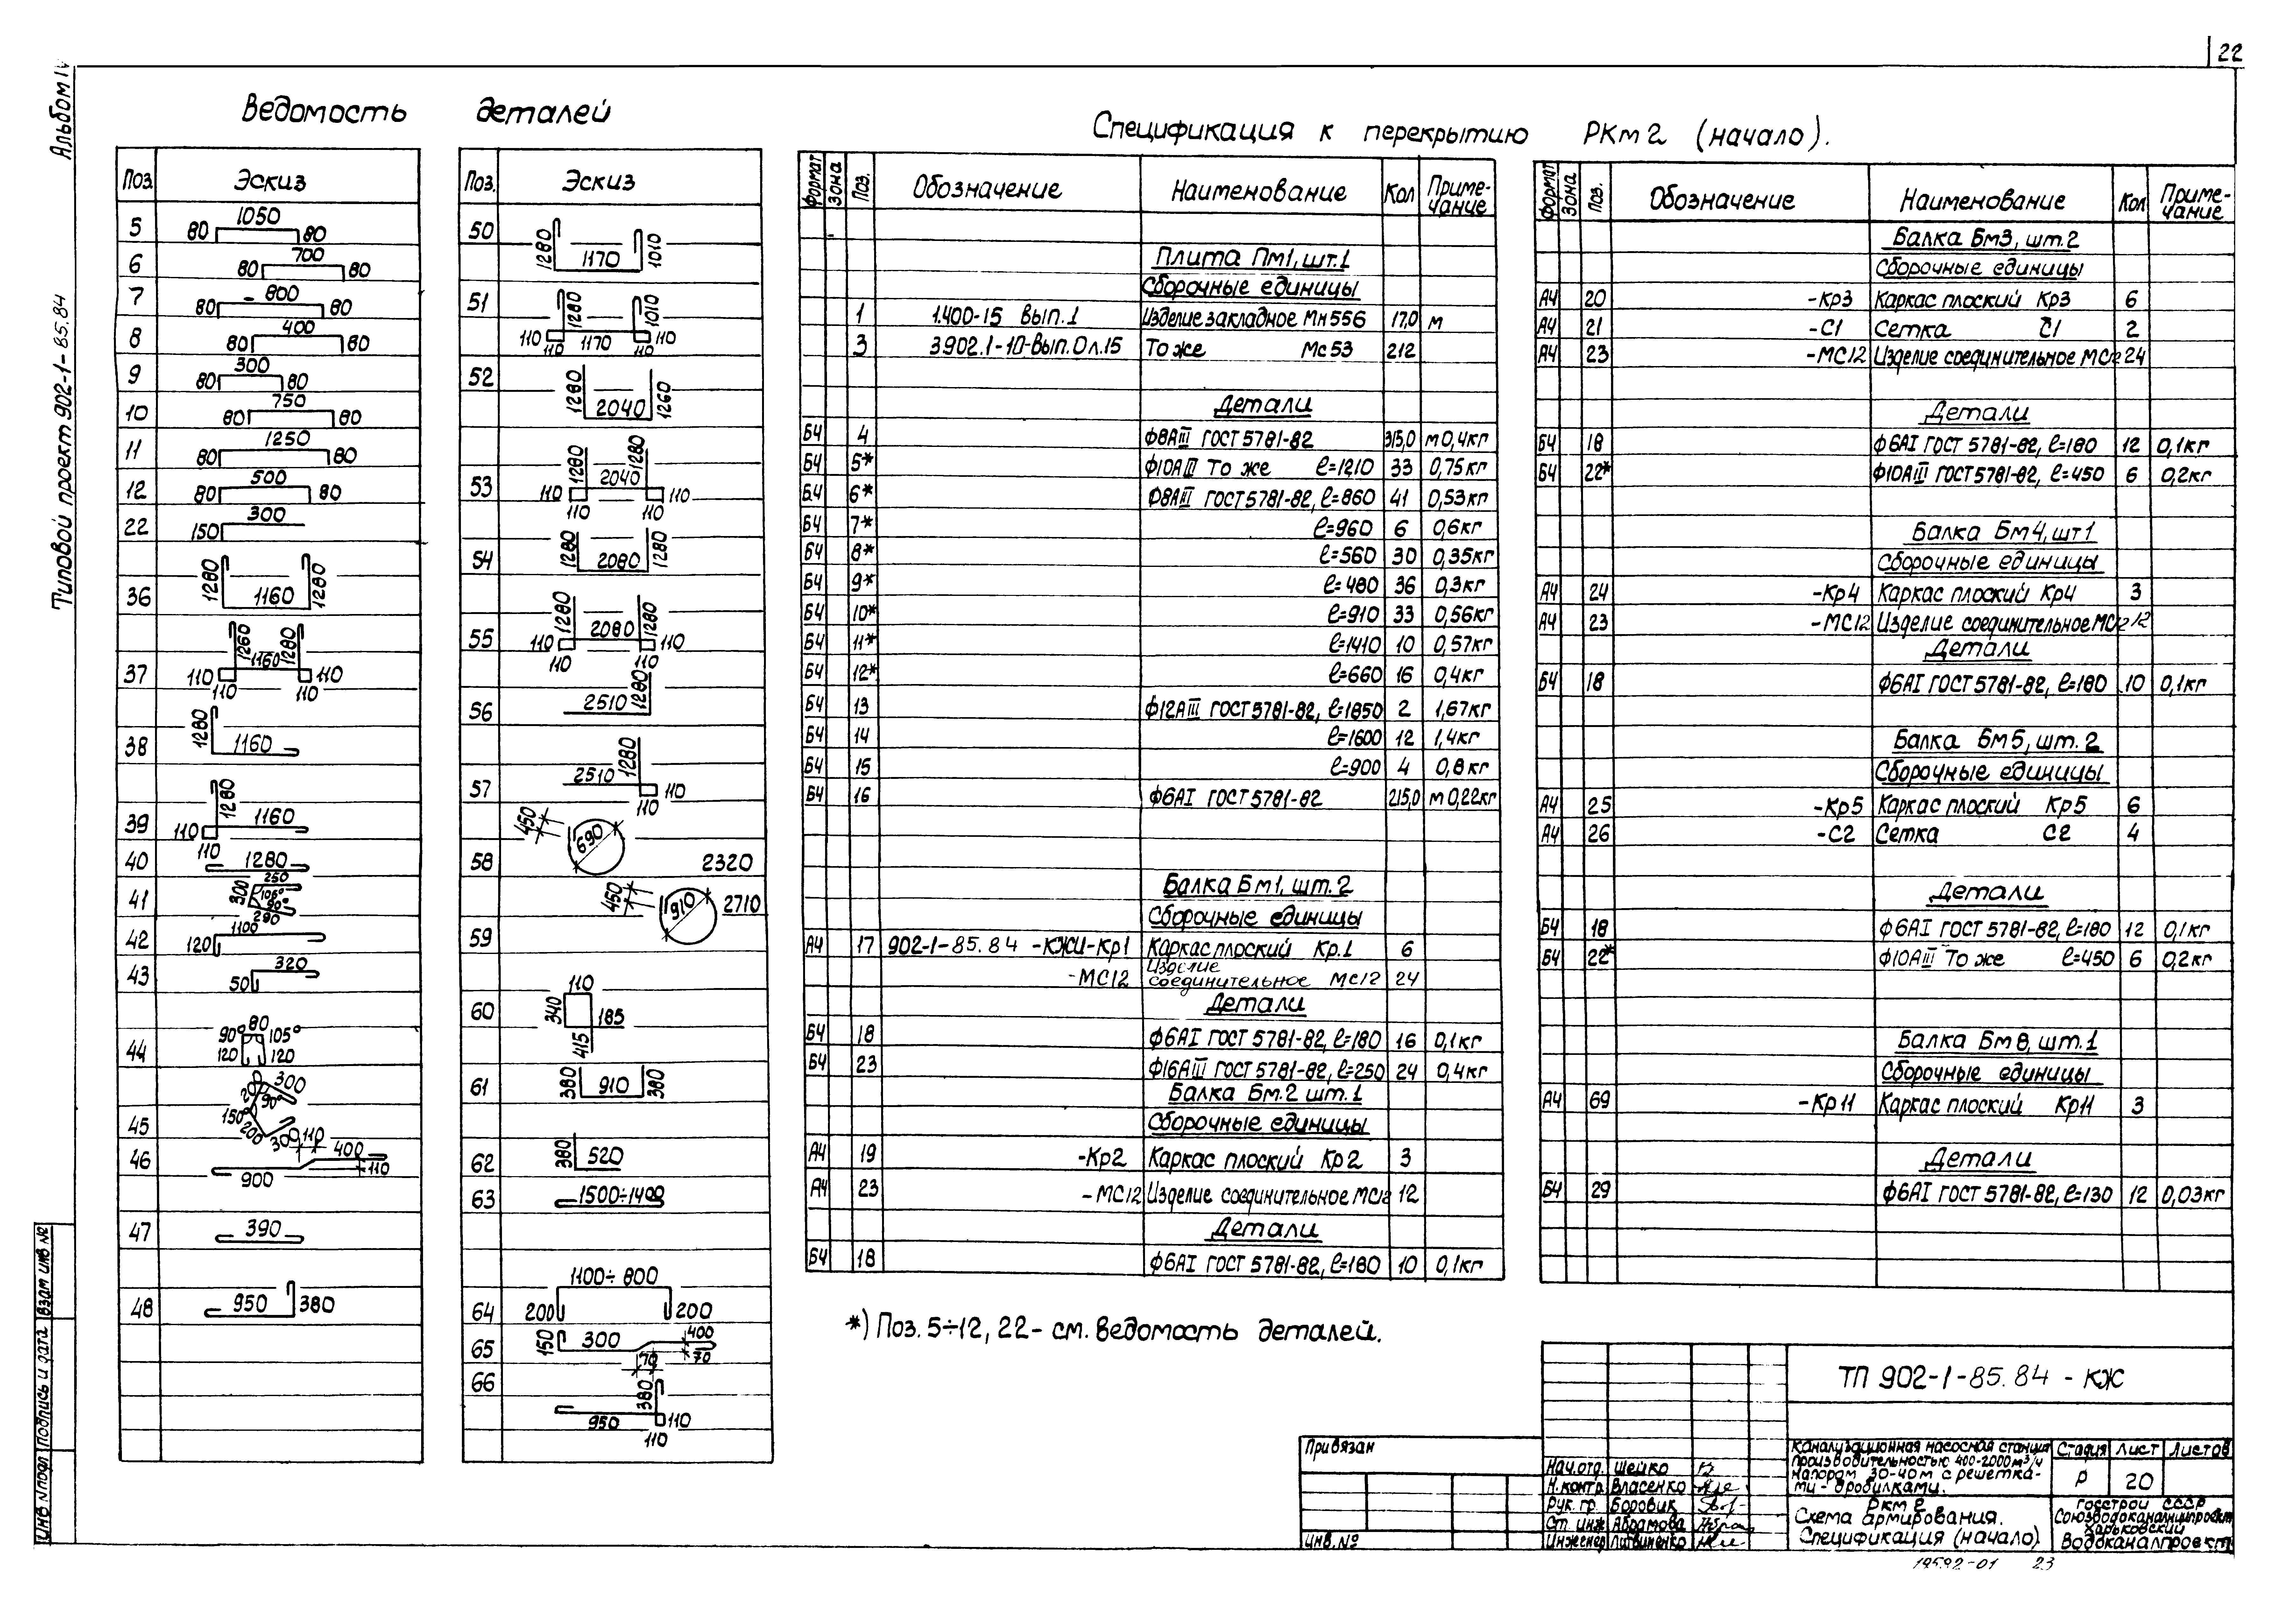 22
Альбом IV
Типовой проект 902-1-85.84
Ведомость деталей
Поз. Эскиз
5 1050 80 80
6 700 80 80
7 800 80 80
8 400 80 80
9 300 80 80
10 750 80 80
11 1250 80 80
12 500 80 80
22 300 150
36 1280 1160 1280
37 1260 1160 1280 110 110 110 110
38 1280 1160
39 1280 1160 110 110
40 1280
41 300 250 105° 90° 290
42 1100 120
43 320 50
44 90° 80 105° 120 120
45 300 90° 150° 200 300
46 110 400 110 900
47 390
48 950 380
Поз. Эскиз
50 1280 1170 1010
51 1280 1010 110 110 1170 110 110
52 1280 2040 1260
53 1280 1280 2040 110 110 110 110
54 1280 2080 1280
55 1280 1280 2080 110 110 110 110
56 2510 1280
57 2510 1280 110 110
58 450 690 2320
59 450 910 2710
60 110 340 185 415
61 380 910 380
62 380 520
63 1500÷1400
64 1100÷800 200 200
65 150 300 400 70 70
66 380 950 110 110
Спецификация к перекрытию РКм2 (начало).
Формат Зона Поз. Обозначение Наименование Кол Приме-чание
Плита Пм1, шт.1
Сборочные единицы
1 1.400-15 вып.1 Изделие закладное Мн556 17,0 м
3 3.902.1-10-вып.0 л.15 То же Мс53 212
Детали
БЧ 4 ф8АIII ГОСТ 5781-82 315,0 м 0,4кг
БЧ 5* ф10АIII То же ℓ=1210 33 0,75кг
БЧ 6* ф8АIII ГОСТ 5781-82, ℓ=860 41 0,53кг
БЧ 7* ℓ=960 6 0,6кг
БЧ 8* ℓ=560 30 0,35кг
БЧ 9* ℓ=480 36 0,3кг
БЧ 10* ℓ=910 33 0,56кг
БЧ 11* ℓ=1410 10 0,57кг
БЧ 12* ℓ=660 16 0,4кг
БЧ 13 ф12АIII ГОСТ 5781-82, ℓ=1850 2 1,67кг
БЧ 14 ℓ=1600 12 1,4кг
БЧ 15 ℓ=900 4 0,8кг
БЧ 16 ф6АI ГОСТ 5781-82 215,0 м 0,22кг
Балка Бм1, шт. 2
Сборочные единицы
А4 17 902-1-85.84 -КЖИ-Кр1 Каркас плоский Кр.1 6
-МС12 Изделие соединительное МС12 24
Детали
БЧ 18 ф6АI ГОСТ 5781-82, ℓ=180 16 0,1кг
БЧ 23 ф16АIII ГОСТ 5781-82, ℓ=250 24 0,4кг
Балка Бм.2 шт.1
Сборочные единицы
А4 19 -Кр2 Каркас плоский Кр2 3
А4 23 -МС12 Изделие соединительное МС12 12
Детали
БЧ 18 ф6АI ГОСТ 5781-82, ℓ=180 10 0,1кг
Формат Зона Поз. Обозначение Наименование Кол Приме-чание
Балка Бм3, шт.2
Сборочные единицы
А4 20 -Кр3 Каркас плоский Кр3 6
А4 21 -С1 Сетка С1 2
А4 23 -МС12 Изделие соединительное МС12 24
Детали
БЧ 18 ф6АI ГОСТ 5781-82, ℓ=180 12 0,1кг
БЧ 22* ф10АIII ГОСТ 5781-82, ℓ=450 6 0,2кг
Балка Бм4, шт1
Сборочные единицы
А4 24 -Кр4 Каркас плоский Кр4 3
А4 23 -МС12 Изделие соединительное МС12 12
Детали
БЧ 18 ф6АI ГОСТ 5781-82, ℓ=180 10 0,1кг
Балка Бм5, шт. 2
Сборочные единицы
А4 25 -Кр5 Каркас плоский Кр5 6
А4 26 -С2 Сетка С2 4
Детали
БЧ 18 ф6АI ГОСТ 5781-82, ℓ=180 12 0,1кг
БЧ 22* ф10АIII То же ℓ=450 6 0,2кг
Балка Бм8, шт.1
Сборочные единицы
А4 69 -Кр11 Каркас плоский Кр11 3
Детали
БЧ 29 ф6АI ГОСТ 5781-82, ℓ=130 12 0,03кг
*) Поз. 5÷12, 22- см. ведомость деталей.
Привязан
Инв.№
ТП 902-1-85.84 - КЖ
Нач.отд. Шейко
Н.контр. Власенко
Рук. гр. Боровик
Ст. инж. Абрамова
Инженер Литвиненко
Канализационная насосная станция
производительностью 400-2000м³/ч
напором 30-40м с решетка-
ми-дробилками.
Стадия Лист Листов
Р 20
РКм 2
Схема армирования.
Спецификация (начало)
Госстрой СССР
Союзводоканалниипроект
Харьковский
Водоканалпроект
19592-01 23
Инв №подл. Подпись и дата Взам инв №